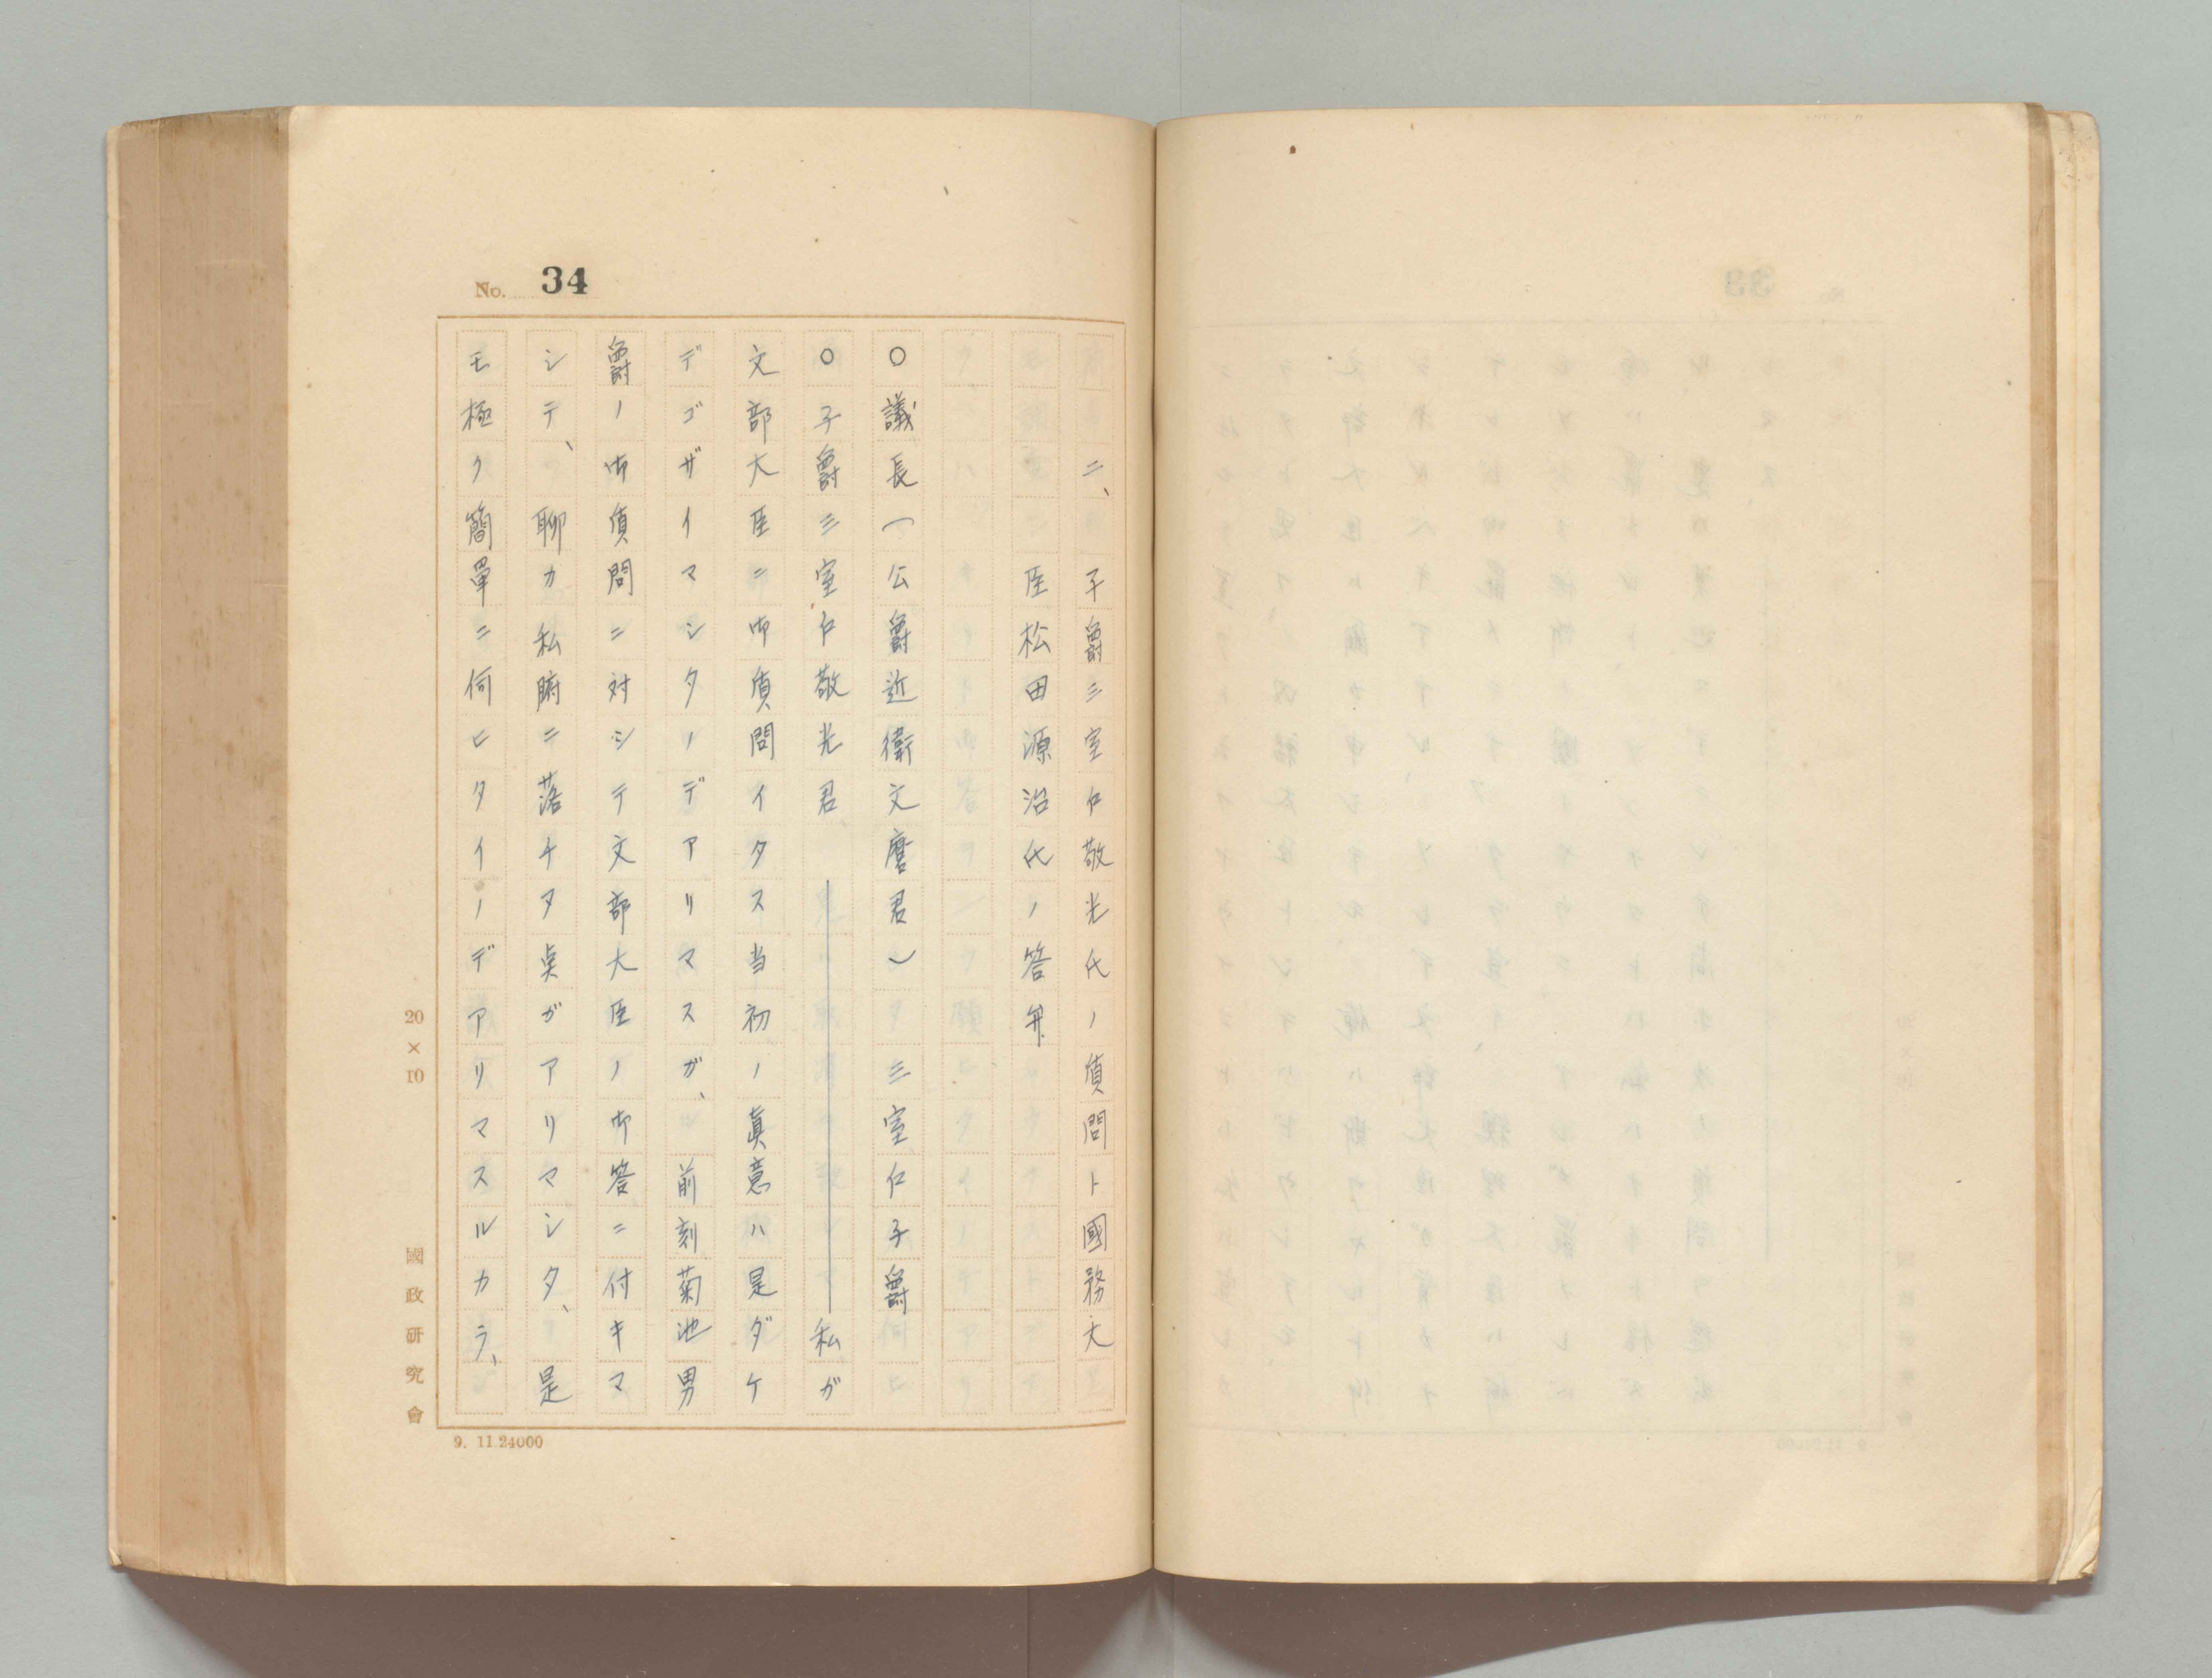 No. 34
二、子爵三室戸敬光氏ノ質問ト國務大
臣松田源治氏ノ答弁
〇議長(公爵近衛文麿君) 三室戸子爵
〇子爵三室戸敬光君 ――――私ガ
文部大臣ニ御質問イタス当初ノ眞意ハ是ダケ
デゴザイマシタノデアリマスガ、前刻菊池男
爵ノ御質問ニ対シテ文部大臣ノ御答ニ付キマ
シテ、聊カ私腑ニ落チヌ点ガアリマシタ、是
モ極ク簡單ニ伺ヒタイノデアリマスルカラ、
20×10
國政研究會
9. 11.24000